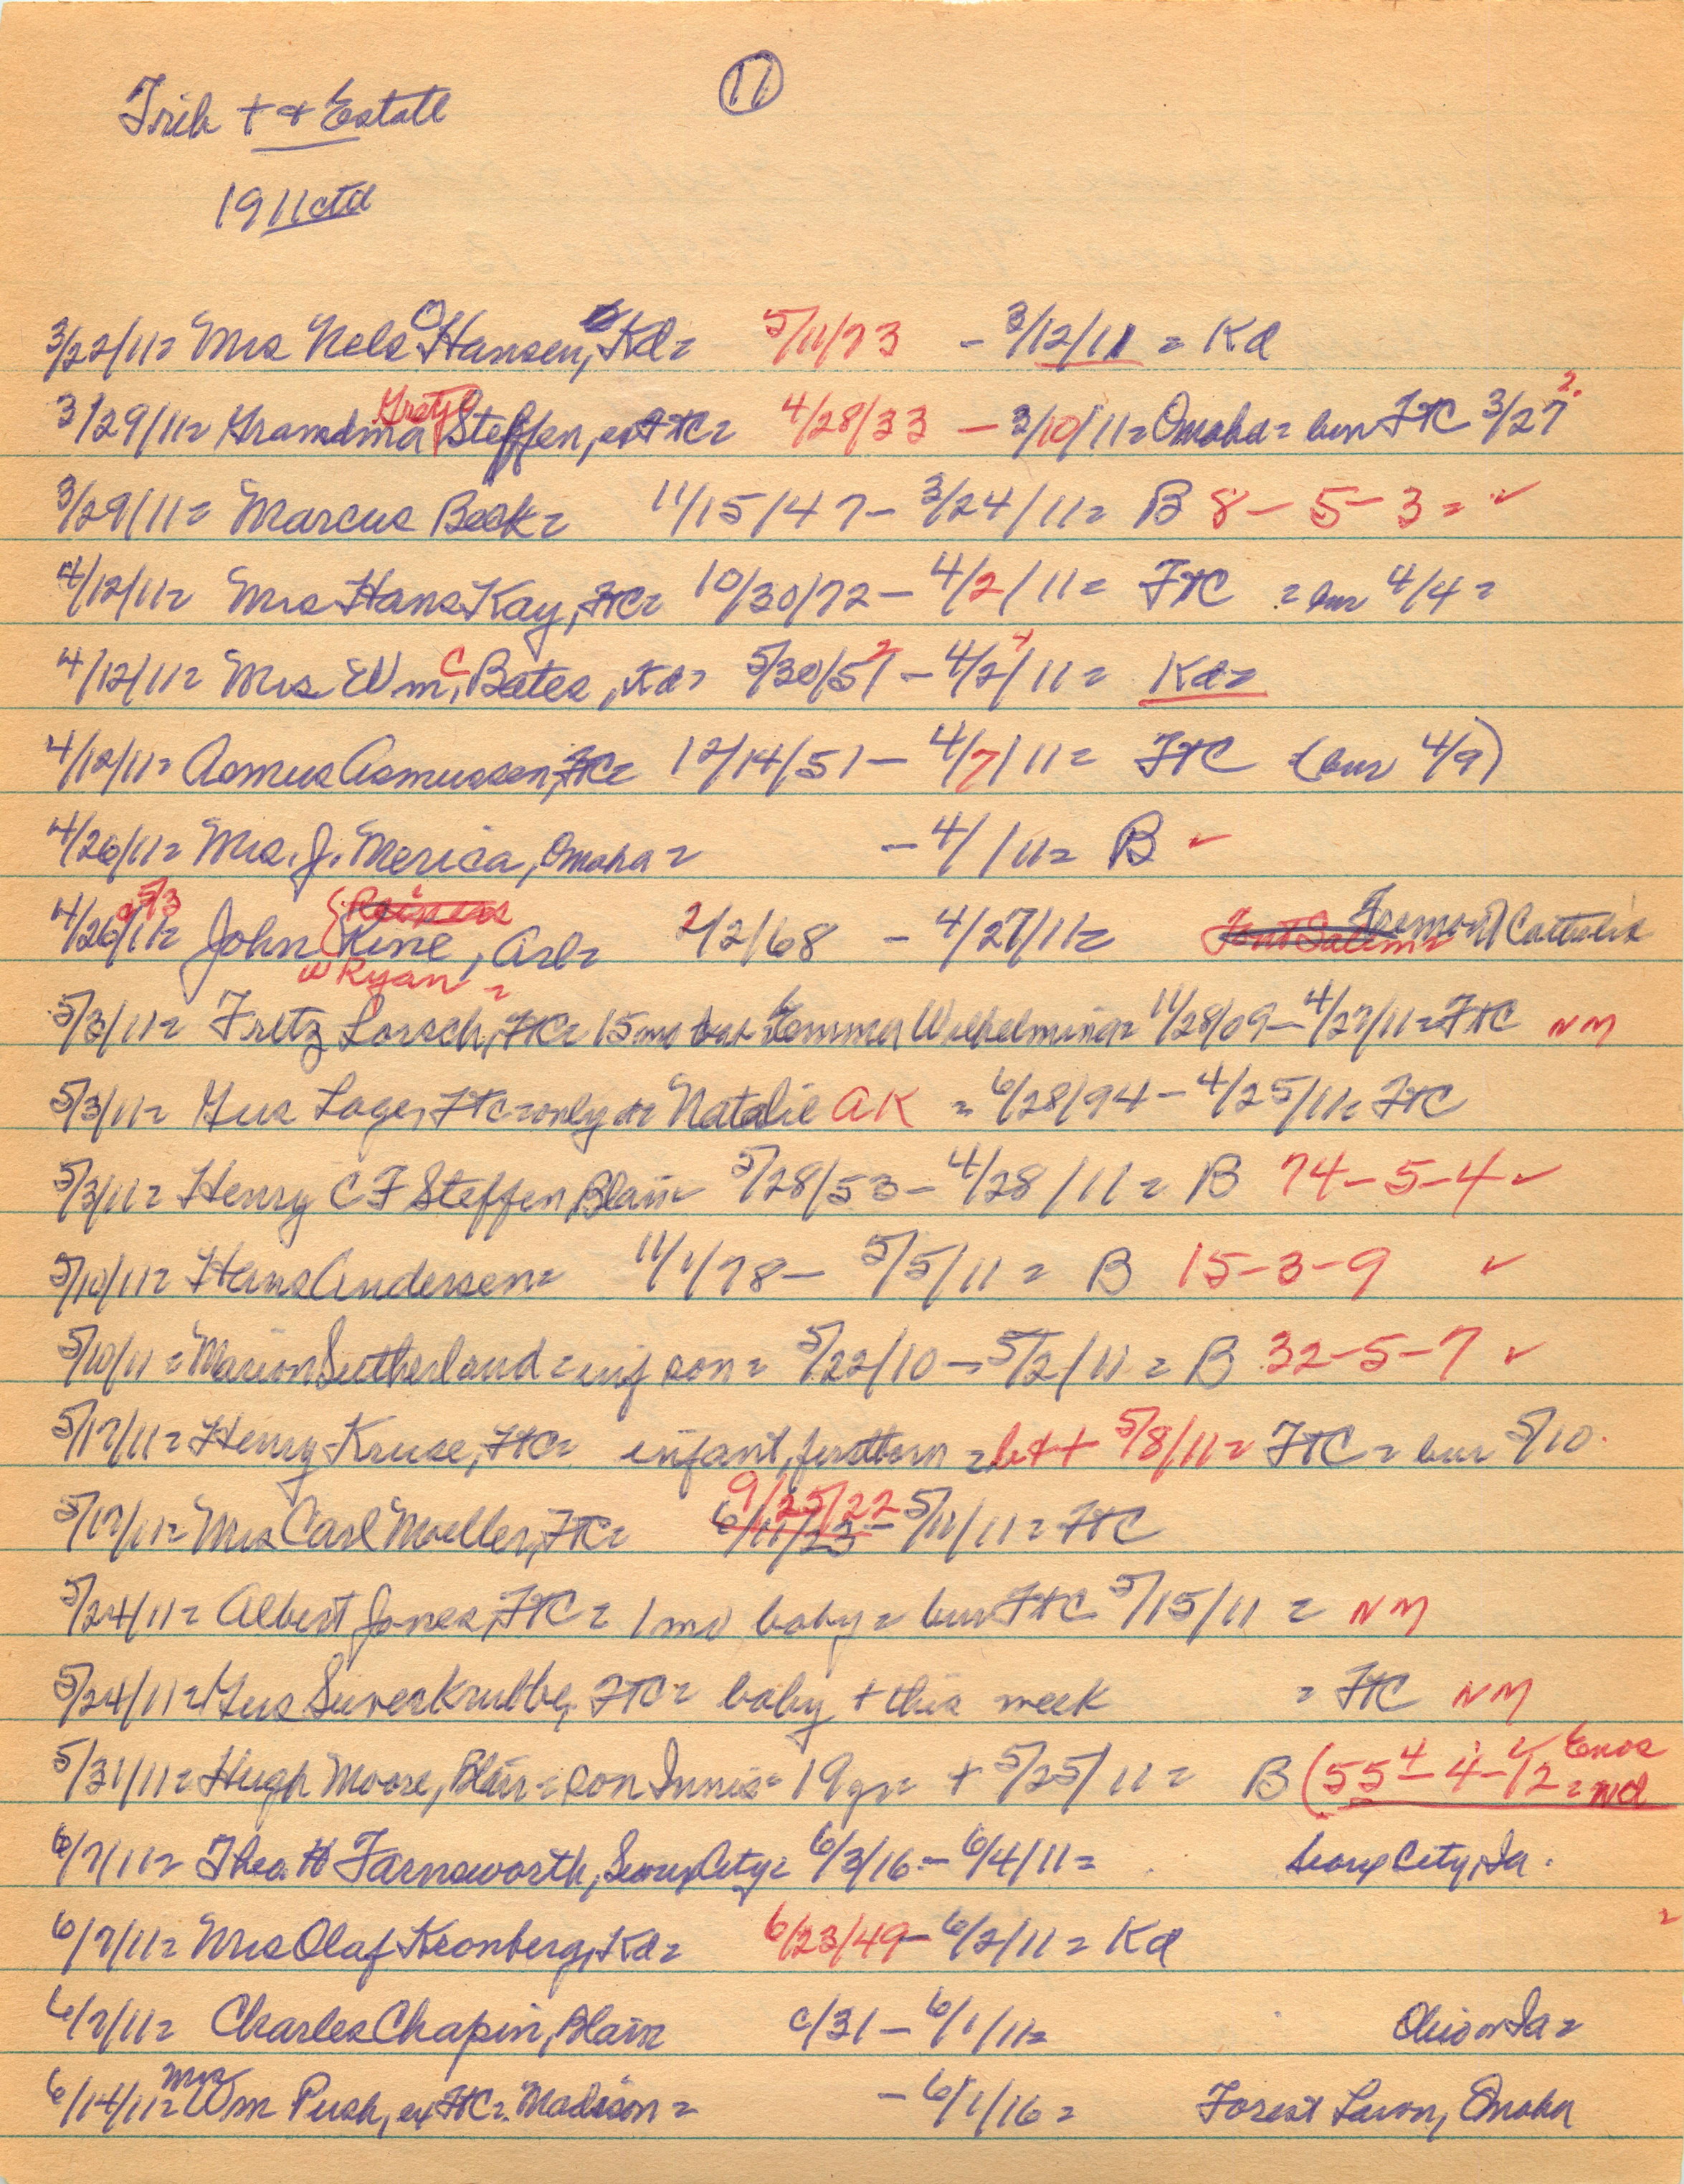 Trib + + Estate
11
1911 ctd
3/22/11= Mrs Nels O Hansen, Kd= 5/11/73 - 3/12/11 = Kd
3/29/11= Grandma Gretje Steffen, ex FtC= 4/28/33 - 3/10/11= Omaha= bur FTC 3/27 2.
3/29/11= Marcus Beck= 11/15/47- 3/24/11= B 8-5-3= ✓
4/12/11= Mrs Hans Kay, FtC= 10/30/72- 4/2/11= FTC = bur 4/4=
4/12/11= Mrs Wm C, Bates, Kd= 5/30/51 2 - 4/2/11= Kd=
4/12/11= Asmus Asmussen, FtC= 12/14/51- 4/7/11= FTC (bur 4/9)
4/26/11= Mrs. J. Merica, Omaha= -4/ /11= B ✓
4/26/11= 5/3 John { Reiners Rine, Arl= 2/2/68 - 4/27/11= Font Salem= Fremont Catholic
Ryan =
5/3/11= Fritz Lorsch, FtC= 15 mo Emma Wilhelmina= 11/28/09- 4/27/11= FTC NM
5/3/11= Gus Lage, FtC= only Natalie AK = 6/28/94- 4/25/11= FTC
5/3/11= Henry C F Steffen, Blair= 5/28/53- 4/28/11= B 74-5-4 ✓
5/10/11= Hans Andersen= 11/1/78- 5/5/11= B 15-3-9 ✓
5/10/11= Marion Sutherland= inf son= 5/22/10- 5/2/11= B 32-5-7 ✓
5/17/11= Henry Kruse, FtC= infant, firstborn = b++ 5/8/11= FTC= bur 5/10.
5/17/11= Mrs Carl Moeller, FtC= 6/11/23 9/25/22- 5/11/11= FTC
5/24/11= Albert Jones, FTC= 1 mo baby= bur FTC 5/15/11= NM
5/24/11= Gus Suverkrubbe, FTC= baby + this week = FTC NM
5/31/11= Hugh Moore, Blair= son Innis= 19 yr= + 5/25/11= B (55 4-4-12= nd Enos
6/7/11= Theo. H Farnsworth, Sioux City= 6/3/16- 6/4/11= Sioux City, Ia.
6/7/11= Mrs Olaf Kronberg, Kd= 6/23/49- 6/2/11= Kd =
6/7/11= Charles Chapin, Blair c/31- 6/1/11= Olivon Ia=
6/14/11= Mrs Wm Push, ex FtC= Madison= -6/1/16= Forest Lawn, Omaha